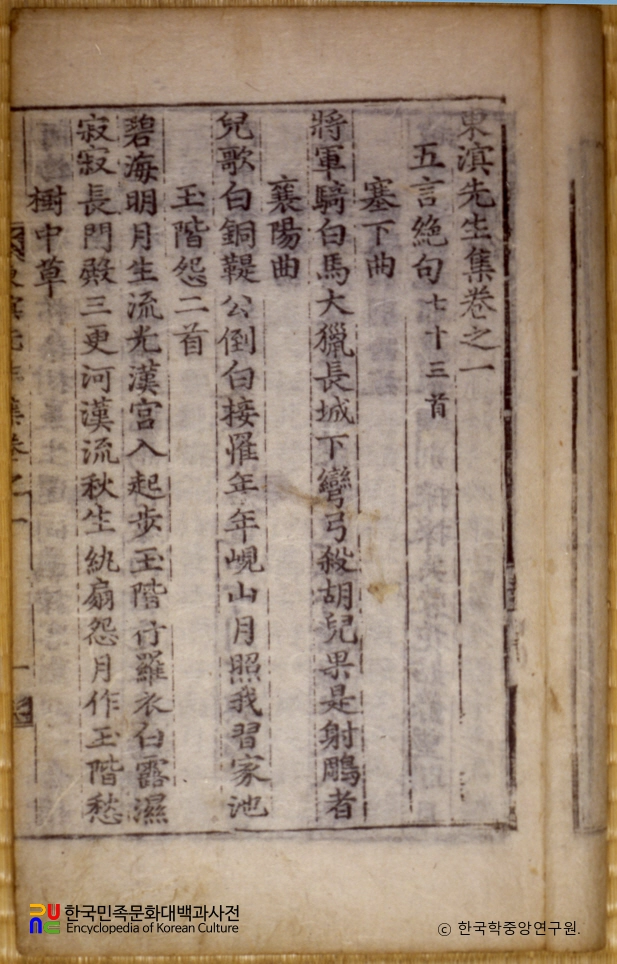 東溟先生集卷之一
五言絶句 七十三首
塞下曲
將軍騎白馬大獵長城下彎弓殺胡兒果是射鵰者
襄陽曲
兒歌白銅鞮公倒白接䍦年年峴山月照我習家池
玉階怨二首
碧海明月生流光漢宮入起步玉階行羅衣白露濕
寂寂長門殿三更河漢流秋生紈扇怨月作玉階愁
樹中草
한국민족문화대백과사전
Encyclopedia of Korean Culture
ⓒ 한국학중앙연구원.